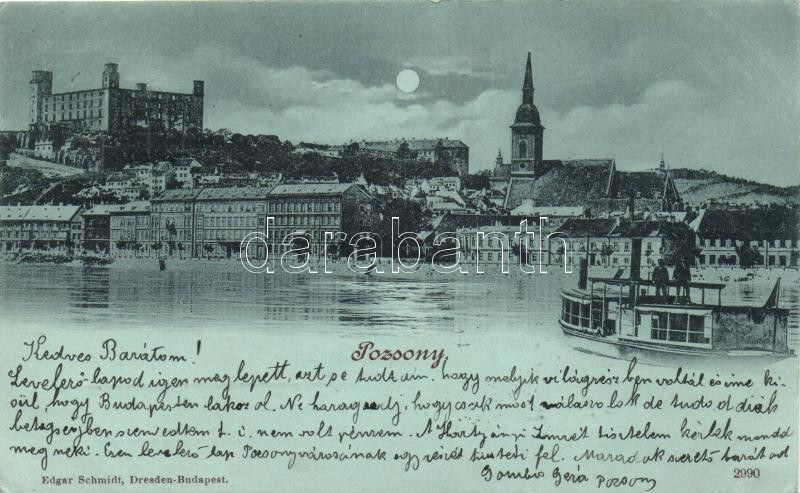 darabanth
Pozsony.
Kedves Barátom!
Levelező-lapod igen meglepett, azt se tudtam, hogy melyik világrészben voltál és ime ki-
sül, hogy Budapesten lakozol. Ne haragudj, hogy csak most válaszolok de tudod diák
betegségben szenvedtem t. i. nem volt pénzem. A Imrét tisztelem kérlek mondd
meg neki. Ezen levelező lap Pozsony városának egy részét tünteti fel. Maradok szerető barátod
Gombos Géza Pozsony
Edgar Schmidt, Dresden-Budapest.
2990